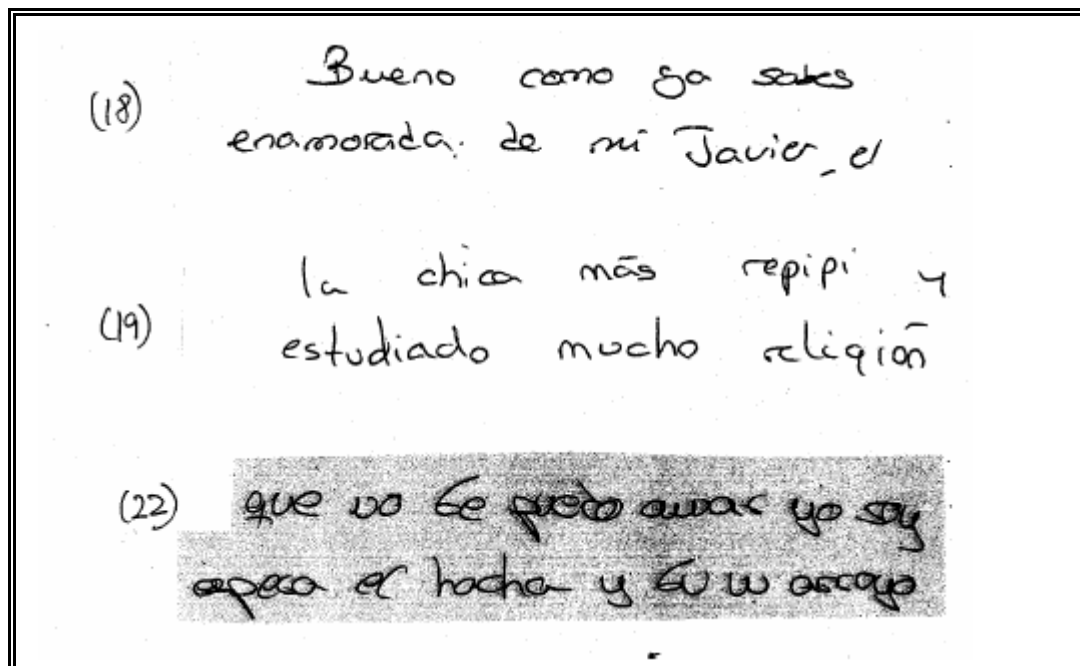 (18) Bueno como ya sabes
enamorada. de mi Javier, el
la chica más repipi y
(19)
estudiado mucho religión
(22) que no te puedo amar yo soy
espera el hacha y tu un arroyo